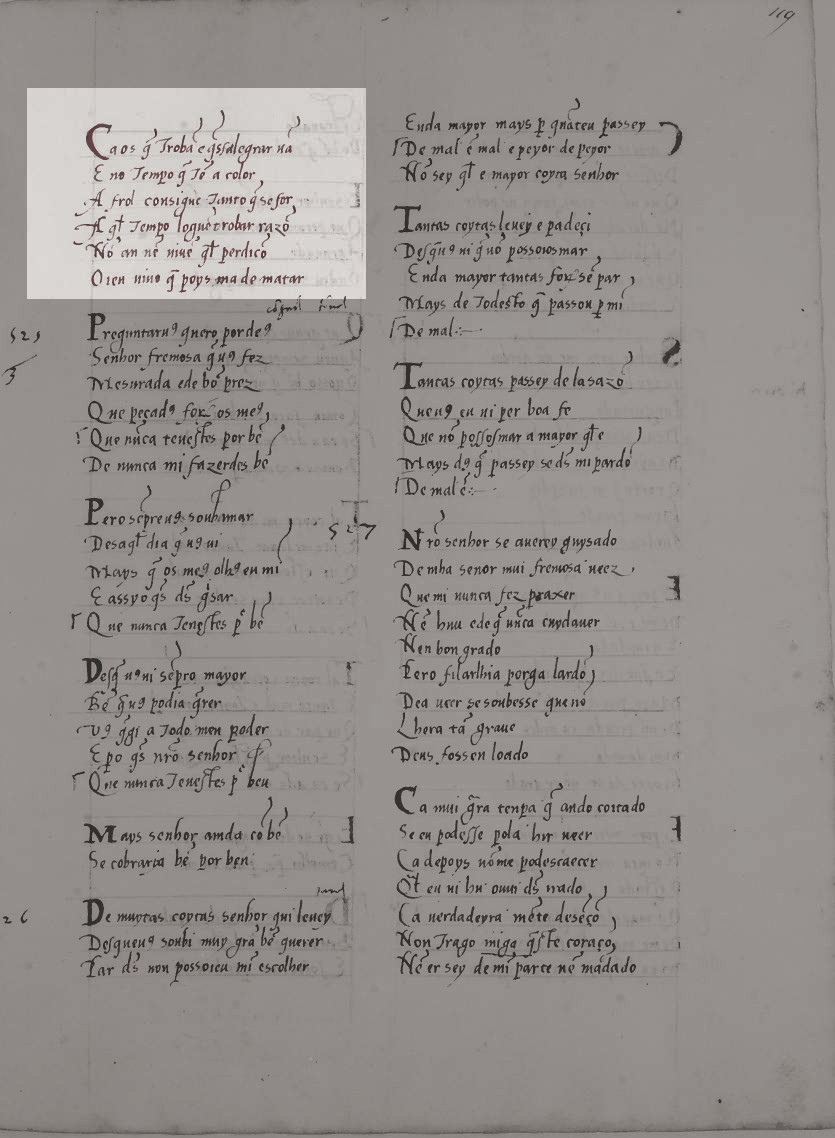 119
Ca os q̄ Troba e q̄ s salegrar uā
E no Tempo q̄ Tē a color
A frol consigue Tanto q̄ se for
A q̄l Tempo logue trobar razō
Nō an nē niue q̄l perdiçō
O ien niuo q̄ poys ma de matar
525
Preguntaruꝯ quero por deꝯ
Senhor fremosa q̄ uꝯ fez
Mesurada e de bō prez
Que pecadꝯ forō os meꝯ
Que nūca teuestes por bē
De nunca mi fazerdes bē
Pero sēpre uꝯ soubamar
Des aq̄l dia q̄ uꝯ ui
Mays q̄ os meꝯ olhꝯ en mi
E assy o q̄s ds̄ g̃sar
Que nunca Teuestes p̄ bē
Des q̄ uꝯ ui sēpro mayor
Bē q̄ uꝯ podia q̄rer
Uꝯ q̄gi a Todo meu poder
E po q̄s nrō senhor
Que nunca Teuestes p̄ beu
Mays senhor amda cō bē
Se cobraria bē por ben
26
De muytas coytas senhor qui leuey
Des que uꝯ soubi muy grā bē querer
Par ds̄ non posso ieu mī escolher
Enda mayor mays p̄ quāteu passey
De mal ē mal e peyor de peyor
Nō sey q̄l e mayor coyta senhor
Tantas coytas leuey e padeçi
Des q̄ uꝯ ui q̄ nō posso iosmar
Enda mayor tantas forō sē par
Mays de Todesto q̄ passou p̄ mi
De mal
Tantas coytas passey de la sazō
Que uꝯ eu ui per boa fe
Que nō possosmar a mayor q̄l e
Mays dꝯ q̄ passey se ds̄ mi pardō
De mal ē
527
Nrō senhor se auerey guysado
De mha senor mui fremosa ueez
Que mi nunca fez praxer
Nē hnu ede q̄ nūca cuydauer
Nen bon grado
Pero filarlhia por ga lardō
Dea ueer se soubesse que nō
Lhera tā graue
Deus fossen loado
Ca mui g̃ra tenpa q̄ ando coitado
Se eu podesse pola hir ueer
Ca depoys nō me podescaecer
Q̄l eu ui hu ouui ds̄ irado
Ca uerdadeyra mēte deseçō
Non Trago miga q̄ste coraçō
Nē er sey de mī parte nē mādado